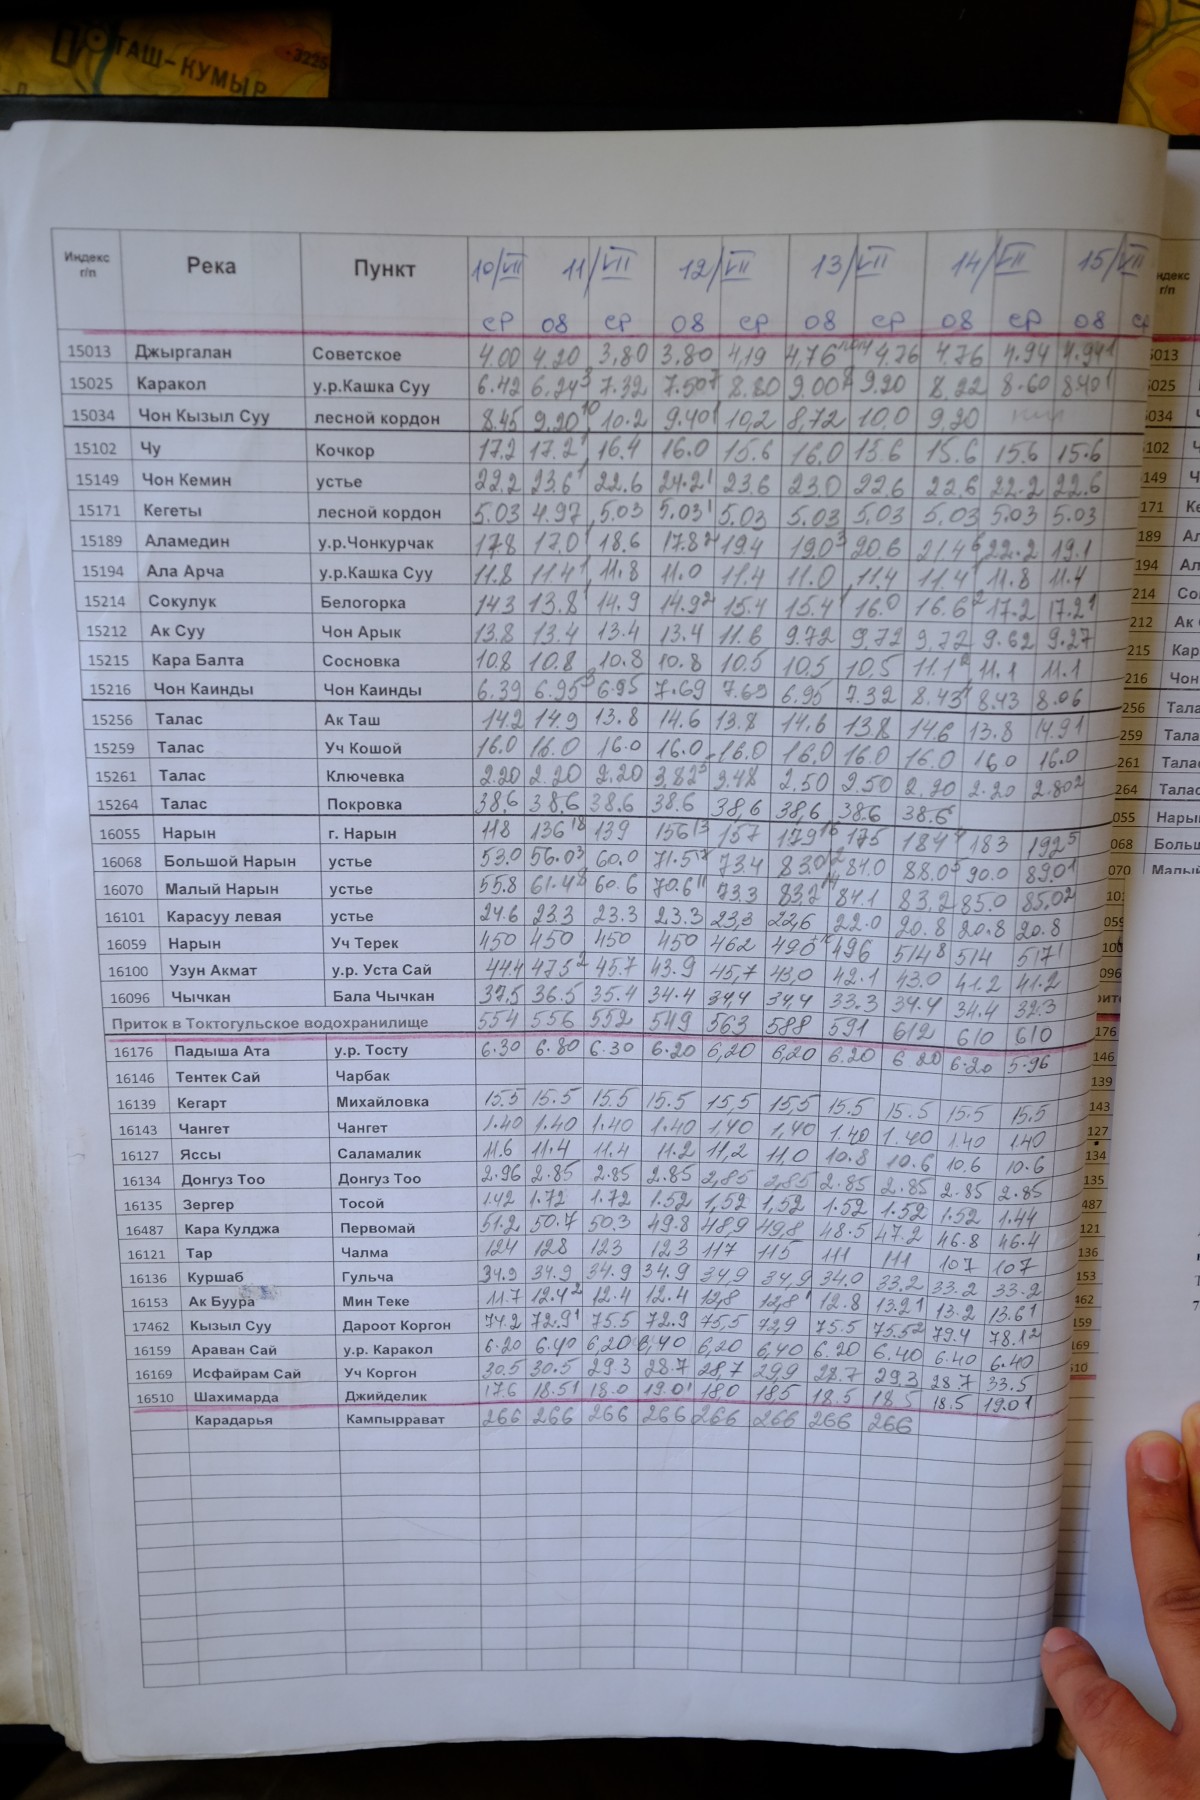 ТАШ-КУМЫР
3225
Индекс г/п Река Пункт 10/VII 11/VII 12/VII 13/VII 14/VII 15/VII
ср 08 ср 08 ср 08 ср 08 ср 08
15013 Джыргалан Советское 4.00 4.20 3.80 3.80 4,19 4,76 4.76 4.76 4.94 4.94¹
15025 Каракол у.р.Кашка Суу 6.42 6.24³ 7.32 7.50 8.80 9.00 9.20 8.22 8.60 8.40¹
15034 Чон Кызыл Суу лесной кордон 8.45 9.20¹⁰ 10.2 9.40¹ 10,2 8,72 10,0 9,20
15102 Чу Кочкор 17.2 17.2¹ 16.4 16.0 15.6 16.0 15.6 15.6 15.6 15.6
15149 Чон Кемин устье 22.2 23.6¹ 22.6 24.2¹ 23.6 23.0 22.6 22.6 22.2 22.6
15171 Кегеты лесной кордон 5.03 4.97 5.03 5.03¹ 5.03 5.03 5.03 5.03 5.03 5.03
15189 Аламедин у.р.Чонкурчак 17.8 17.0¹ 18.6 17.8² 19.4 19.0³ 20.6 21.4⁶ 22.2 19.1
15194 Ала Арча у.р.Кашка Суу 11.8 11.4¹ 11.8 11.0 11.4 11.0 11.4 11.4¹ 11.8 11.4
15214 Сокулук Белогорка 14.3 13.8¹ 14.9 14.9² 15.4 15.4¹ 16.0 16.6² 17.2 17.2¹
15212 Ак Суу Чон Арык 13.8 13.4 13.4 13.4 11.6 9.72 9,72 9,72 9.62 9.27
15215 Кара Балта Сосновка 10.8 10.8 10.8 10.8 10.5 10.5 10,5 11.1 11.1 11.1
15216 Чон Каинды Чон Каинды 6.39 6.95³ 6.95 7.69 7.69 6.95 7.32 8.43 8.43 8.06
15256 Талас Ак Таш 14.2 14.9 13.8 14.6 13.8 14.6 13.8 14.6 13.8 14.9¹
15259 Талас Уч Кошой 16.0 16.0 16.0 16.0 16.0 16.0 16.0 16.0 16.0 16.0
15261 Талас Ключевка 2.20 2.20 2.20 3.82⁵ 3.48 2.50 2.50 2.20 2.20 2.80²
15264 Талас Покровка 38.6 38.6 38.6 38.6 38,6 38,6 38.6 38.6
16055 Нарын г. Нарын 118 136¹⁸ 139 156¹³ 157 179¹⁶ 175 184⁴ 183 192⁵
16068 Большой Нарын устье 53.0 56.0³ 60.0 71.5¹² 73.4 83.0¹² 81.0 88.0⁵ 90.0 89.0¹
16070 Малый Нарын устье 55.8 61.4⁸ 60.6 70.6¹¹ 73.3 83.2¹⁴ 84.1 83.2 85.0 85.0²
16101 Карасуу левая устье 24.6 23.3 23.3 23.3 23,3 22,6 22.0 20.8 20.8 20.8
16059 Нарын Уч Терек 450 450 450 450 462 490 496 514⁸ 514 517¹
16100 Узун Акмат у.р. Уста Сай 44.4 47.5² 45.7 43.9 45,7 43,0 42.1 43.0 41.2 41.2
16096 Чычкан Бала Чычкан 37.5 36.5 35.4 34.4 34,4 34,4 33.3 34.4 34.4 32.3
Приток в Токтогульское водохранилище 554 556 552 549 563 588 591 612 610 610
16176 Падыша Ата у.р. Тосту 6.30 6.80 6.30 6.20 6,20 6,20 6.20 6.20 6.20 5.96
16146 Тентек Сай Чарбак
16139 Кегарт Михайловка 15.5 15.5 15.5 15.5 15,5 15,5 15.5 15.5 15.5 15.5
16143 Чангет Чангет 1.40 1.40 1.40 1.40 1,40 1,40 1.40 1.40 1.40 1.40
16127 Яссы Саламалик 11.6 11.4 11.4 11.2 11,2 11,0 10.8 10.6 10.6 10.6
16134 Донгуз Тоо Донгуз Тоо 2.96 2.85 2.85 2.85 2,85 2,85 2.85 2.85 2.85 2.85
16135 Зергер Тосой 1.42 1.72 1.72 1.52 1,52 1,52 1.52 1.52 1.52 1.44
16487 Кара Кулджа Первомай 51.2 50.7 50.3 49.8 48,9 49,8 48.5 47.2 46.8 46.4
16121 Тар Чалма 124 128 123 123 117 115 111 111 107 107
16136 Куршаб Гульча 34.9 34.9 34.9 34.9 34,9 34,9 34.0 33.2 33.2 33.2
16153 Ак Буура Мин Теке 11.7 12.4² 12.4 12.4 12,8 12,8¹ 12.8 13.2¹ 13.2 13.6¹
17462 Кызыл Суу Дароот Коргон 74.2 72.9¹ 75.5 72.9 75,5 72,9 75.5 75.5² 79.4 78.1²
16159 Араван Сай у.р. Каракол 6.20 6.40 6,20 6,40 6,20 6,40 6.20 6.40 6.40 6.40
16169 Исфайрам Сай Уч Коргон 30.5 30.5 29.3 28.7 28,7 29,9 28.7 29,3 28.7 33.5
16510 Шахимарда Джийделик 17.6 18.5¹ 18.0 19.0¹ 18,0 18,5 18.5 18.5 18.5 19.0¹
Карадарья Кампыррават 266 266 266 266 266 266 266 266